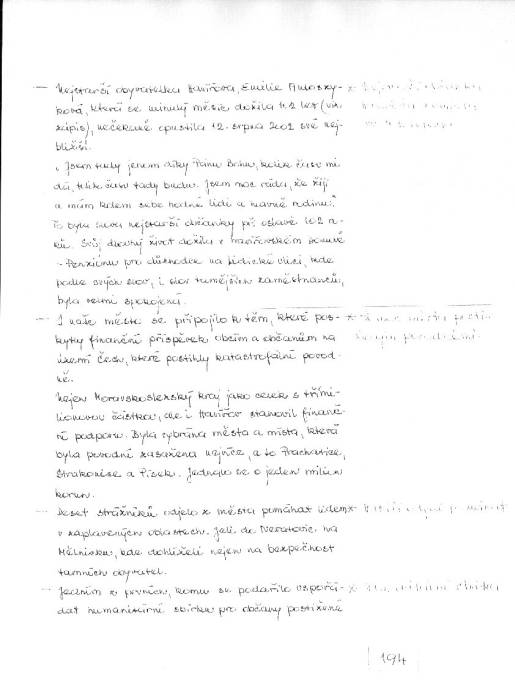 — Nejstarší obyvatelka Havířova, Emilie
ková, která se minulý měsíc dožila 102 let (viz
zápis), nečekaně opustila 12. srpna 2002 své nej-
bližší.
„Jsem tady jenom díky Pánu Bohu, kolik času mi
dá, tolik času tady budu. Jsem moc ráda, že žiji
a mám kolem sebe hodné lidi a hlavně rodinu."
To byla slova nejstarší občanky při oslavě 102 ro-
ků. Svůj dlouhý život dožila v havířovském domově
- Penziónu pro důchodce na Lidické ulici, kde
podle svých slov, i slov tamějších zaměstnanců,
byla velmi spokojená.
— I naše město se připojilo k těm, které pos-
kytly finanční příspěvek obcím a občanům na
území Čech, které postihly katastrofální povod-
ně.
Nejen Moravskoslezský kraj jako celek s třími-
lionovou částkou, ale i Havířov stanovil finanč-
ní podporu. Byla vybrána města a místa, která
byla povodní zasažena nejvíce, a to Prachatice,
Strakonice a Písek. Jednalo se o jeden milion
korun.
— Deset strážníků odjelo z města pomáhat lidem
v zaplavených oblastech. Jeli do Neratovic na
Mělnicku, kde dohlíželi nejen na bezpečnost
tamních obyvatel.
— Jedním z prvních, komu se podařilo uspořá-
dat humanitární sbírku pro občany postižené
194